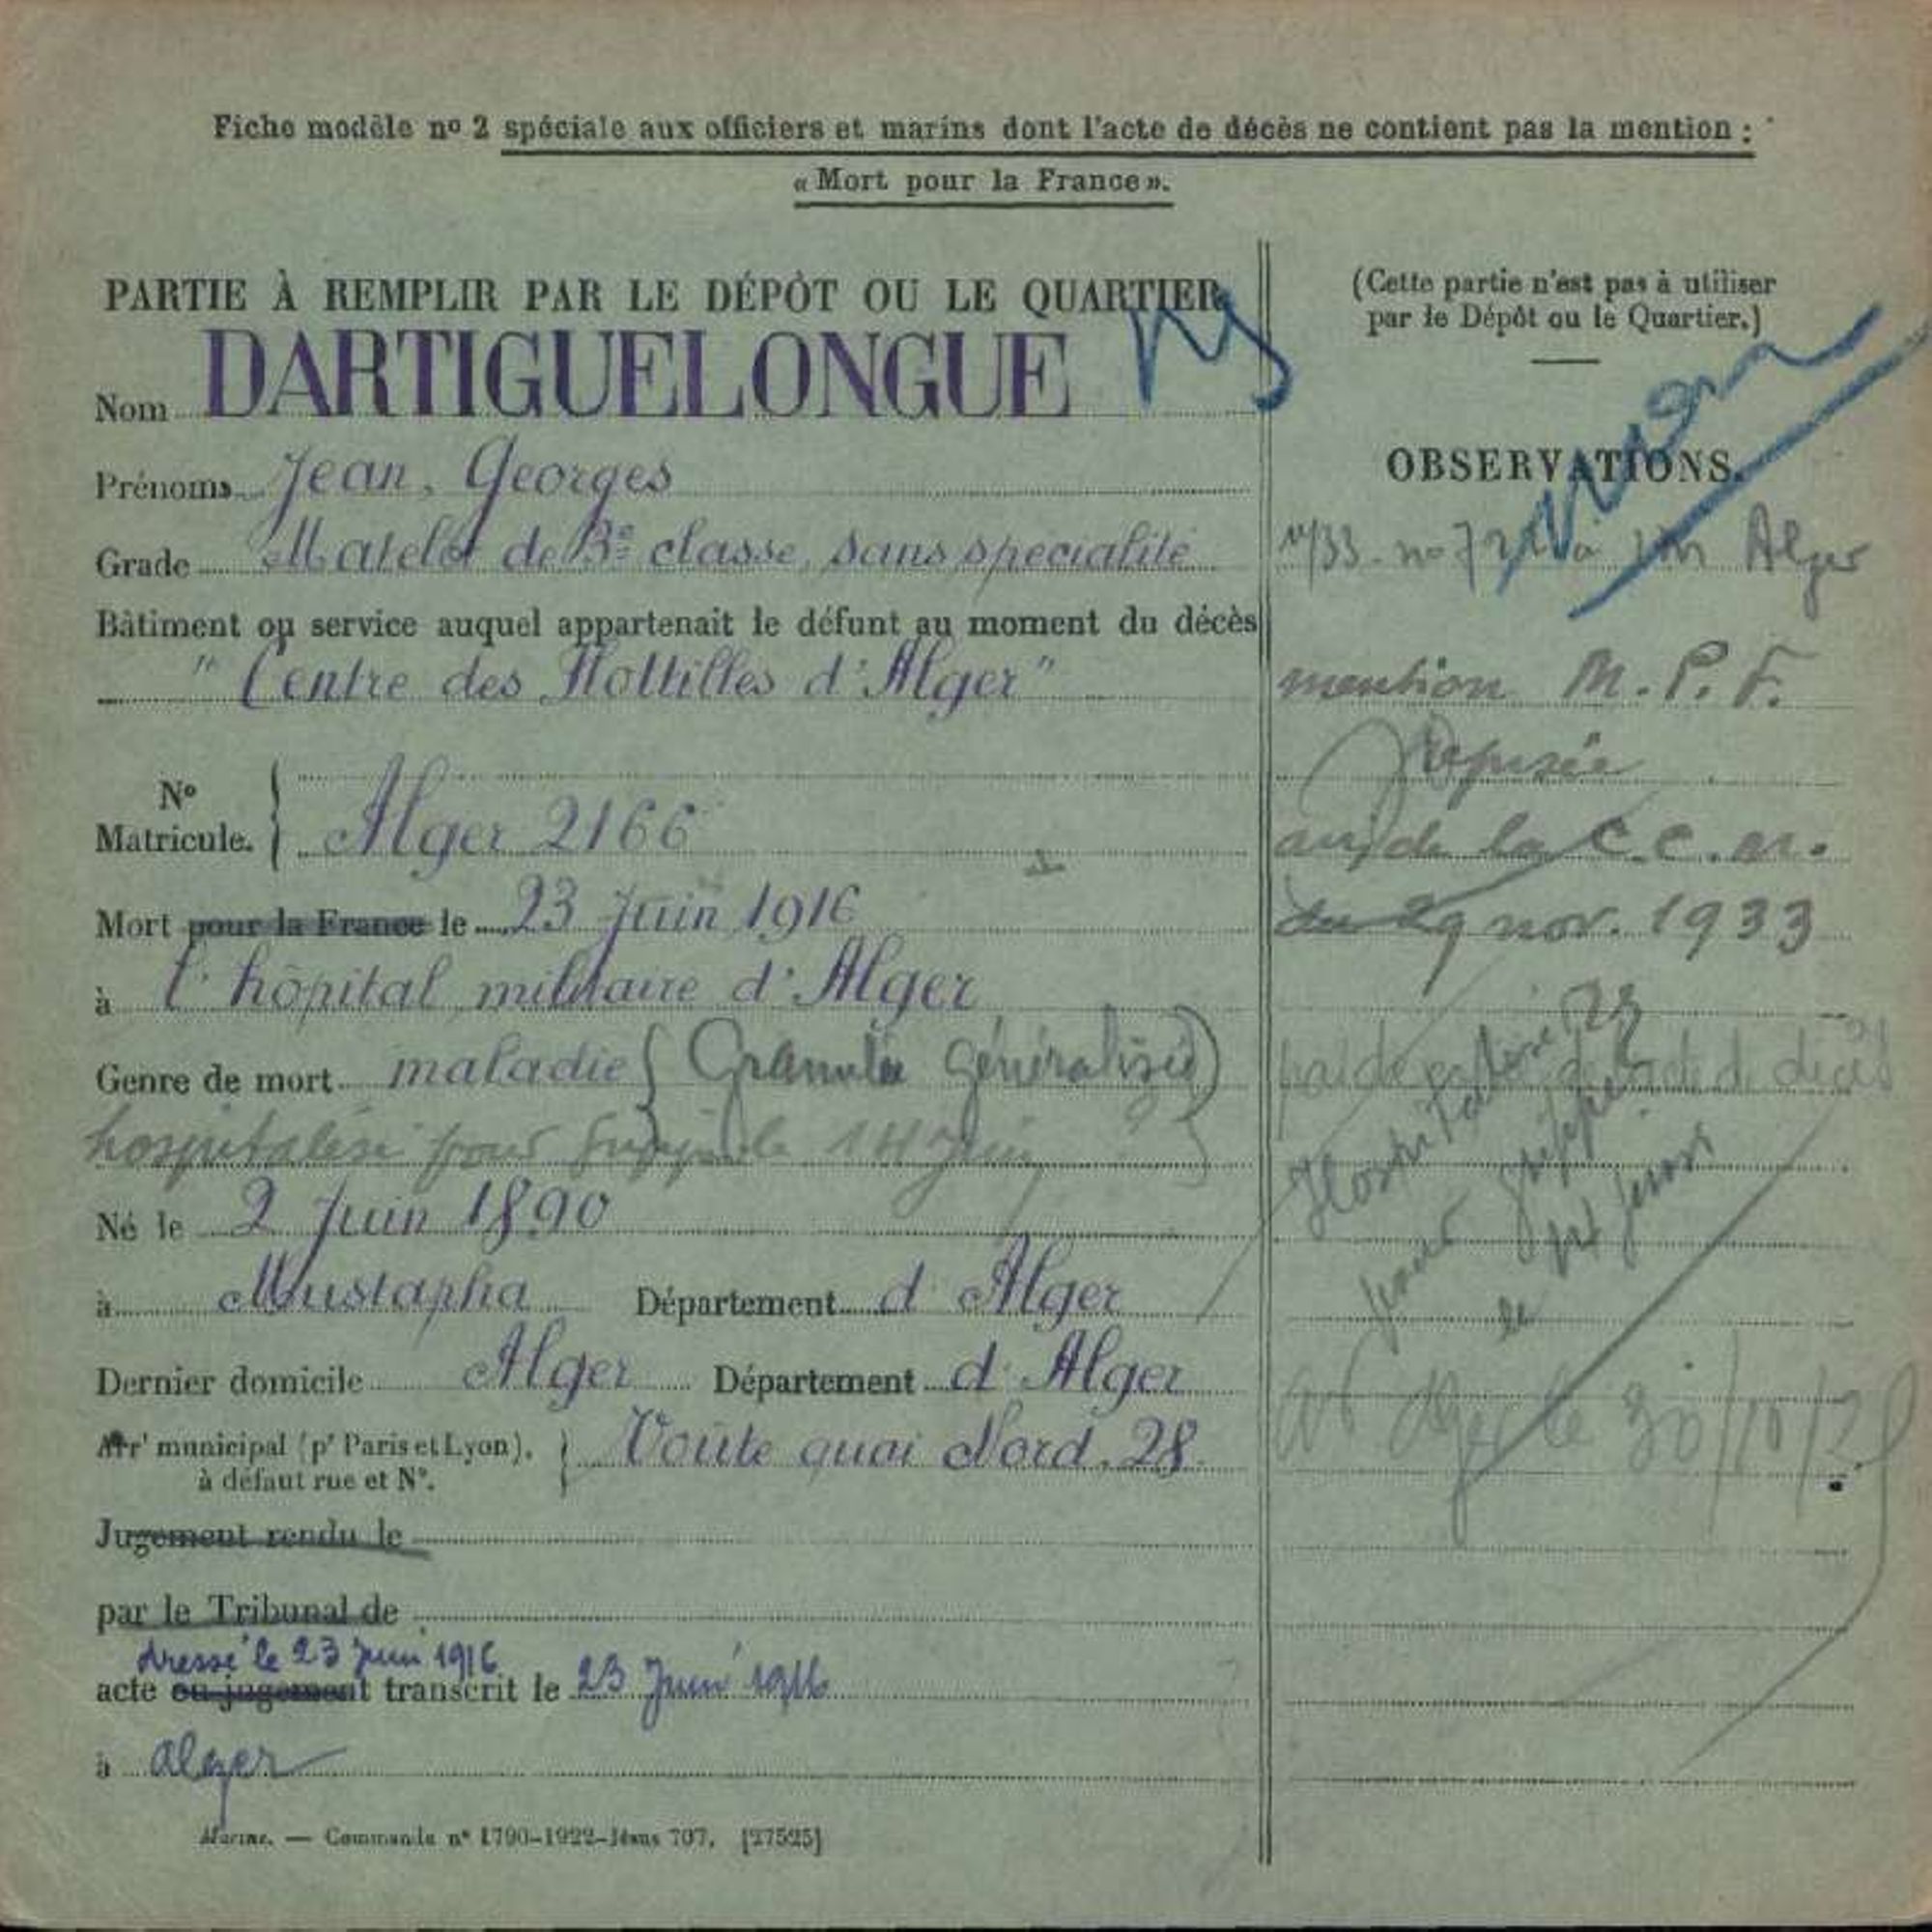 Fiche modèle nº 2 spéciale aux officiers et marins dont l'acte de décès ne contient pas la mention :
« Mort pour la France ».
PARTIE À REMPLIR PAR LE DÉPÔT OU LE QUARTIER
Nom DARTIGUELONGUE
Prénoms Jean, Georges
Grade Matelot de 3e classe, sans spécialité
Bâtiment ou service auquel appartenait le défunt au moment du décès
" Centre des Flottilles d'Alger "
Nº Matricule. Alger 2166
Mort pour la France le 23 Juin 1916
à l'hôpital militaire d'Alger
Genre de mort maladie ( Granulie généralisée )
hospitalisé pour le 14 Juin
Né le 2 Juin 1890
à Mustapha Département d'Alger
Dernier domicile Alger Département d'Alger
Arr' municipal (pr Paris et Lyon). à défaut rue et Nº. Voûte quai Nord. 28
Jugement rendu le
par le Tribunal de
dressé le 23 Juin 1916
acte ou jugement transcrit le 23 Juin 1916
à Alger
Marine. — Commande nº 1790-1922-Jésus 707. [27525]
(Cette partie n'est pas à utiliser
par le Dépôt ou le Quartier.)
OBSERVATIONS.
Alger
mention M.P.F.
refusée
de la C.C.M.
du 29 nov. 1933
Hospitalisé
pour grippe
le 14 Juin